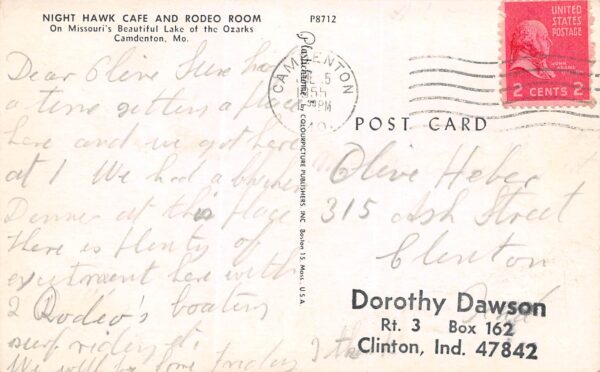 NIGHT HAWK CAFE AND RODEO ROOM
On Missouri's Beautiful Lake of the Ozarks
Camdenton, Mo.
P8712
Dear Olive Sure had
a time getting a place
here and we got here
at 1 We had a
Dinner at this place
There is plenty of
excitement here with
2 Rodeo's boating
surf riding etc.
We will be home Friday I think
Plastichrome ® by COLOURPICTURE PUBLISHERS, INC. Boston 15, Mass., U.S.A.
CAMDENTON
5
1955
PM
MO.
UNITED
STATES
POSTAGE
JOHN
ADAMS
2 CENTS 2
POST CARD
Olive Heber
315 Ash Street
Clinton
Ind
Dorothy Dawson
Rt. 3 Box 162
Clinton, Ind. 47842